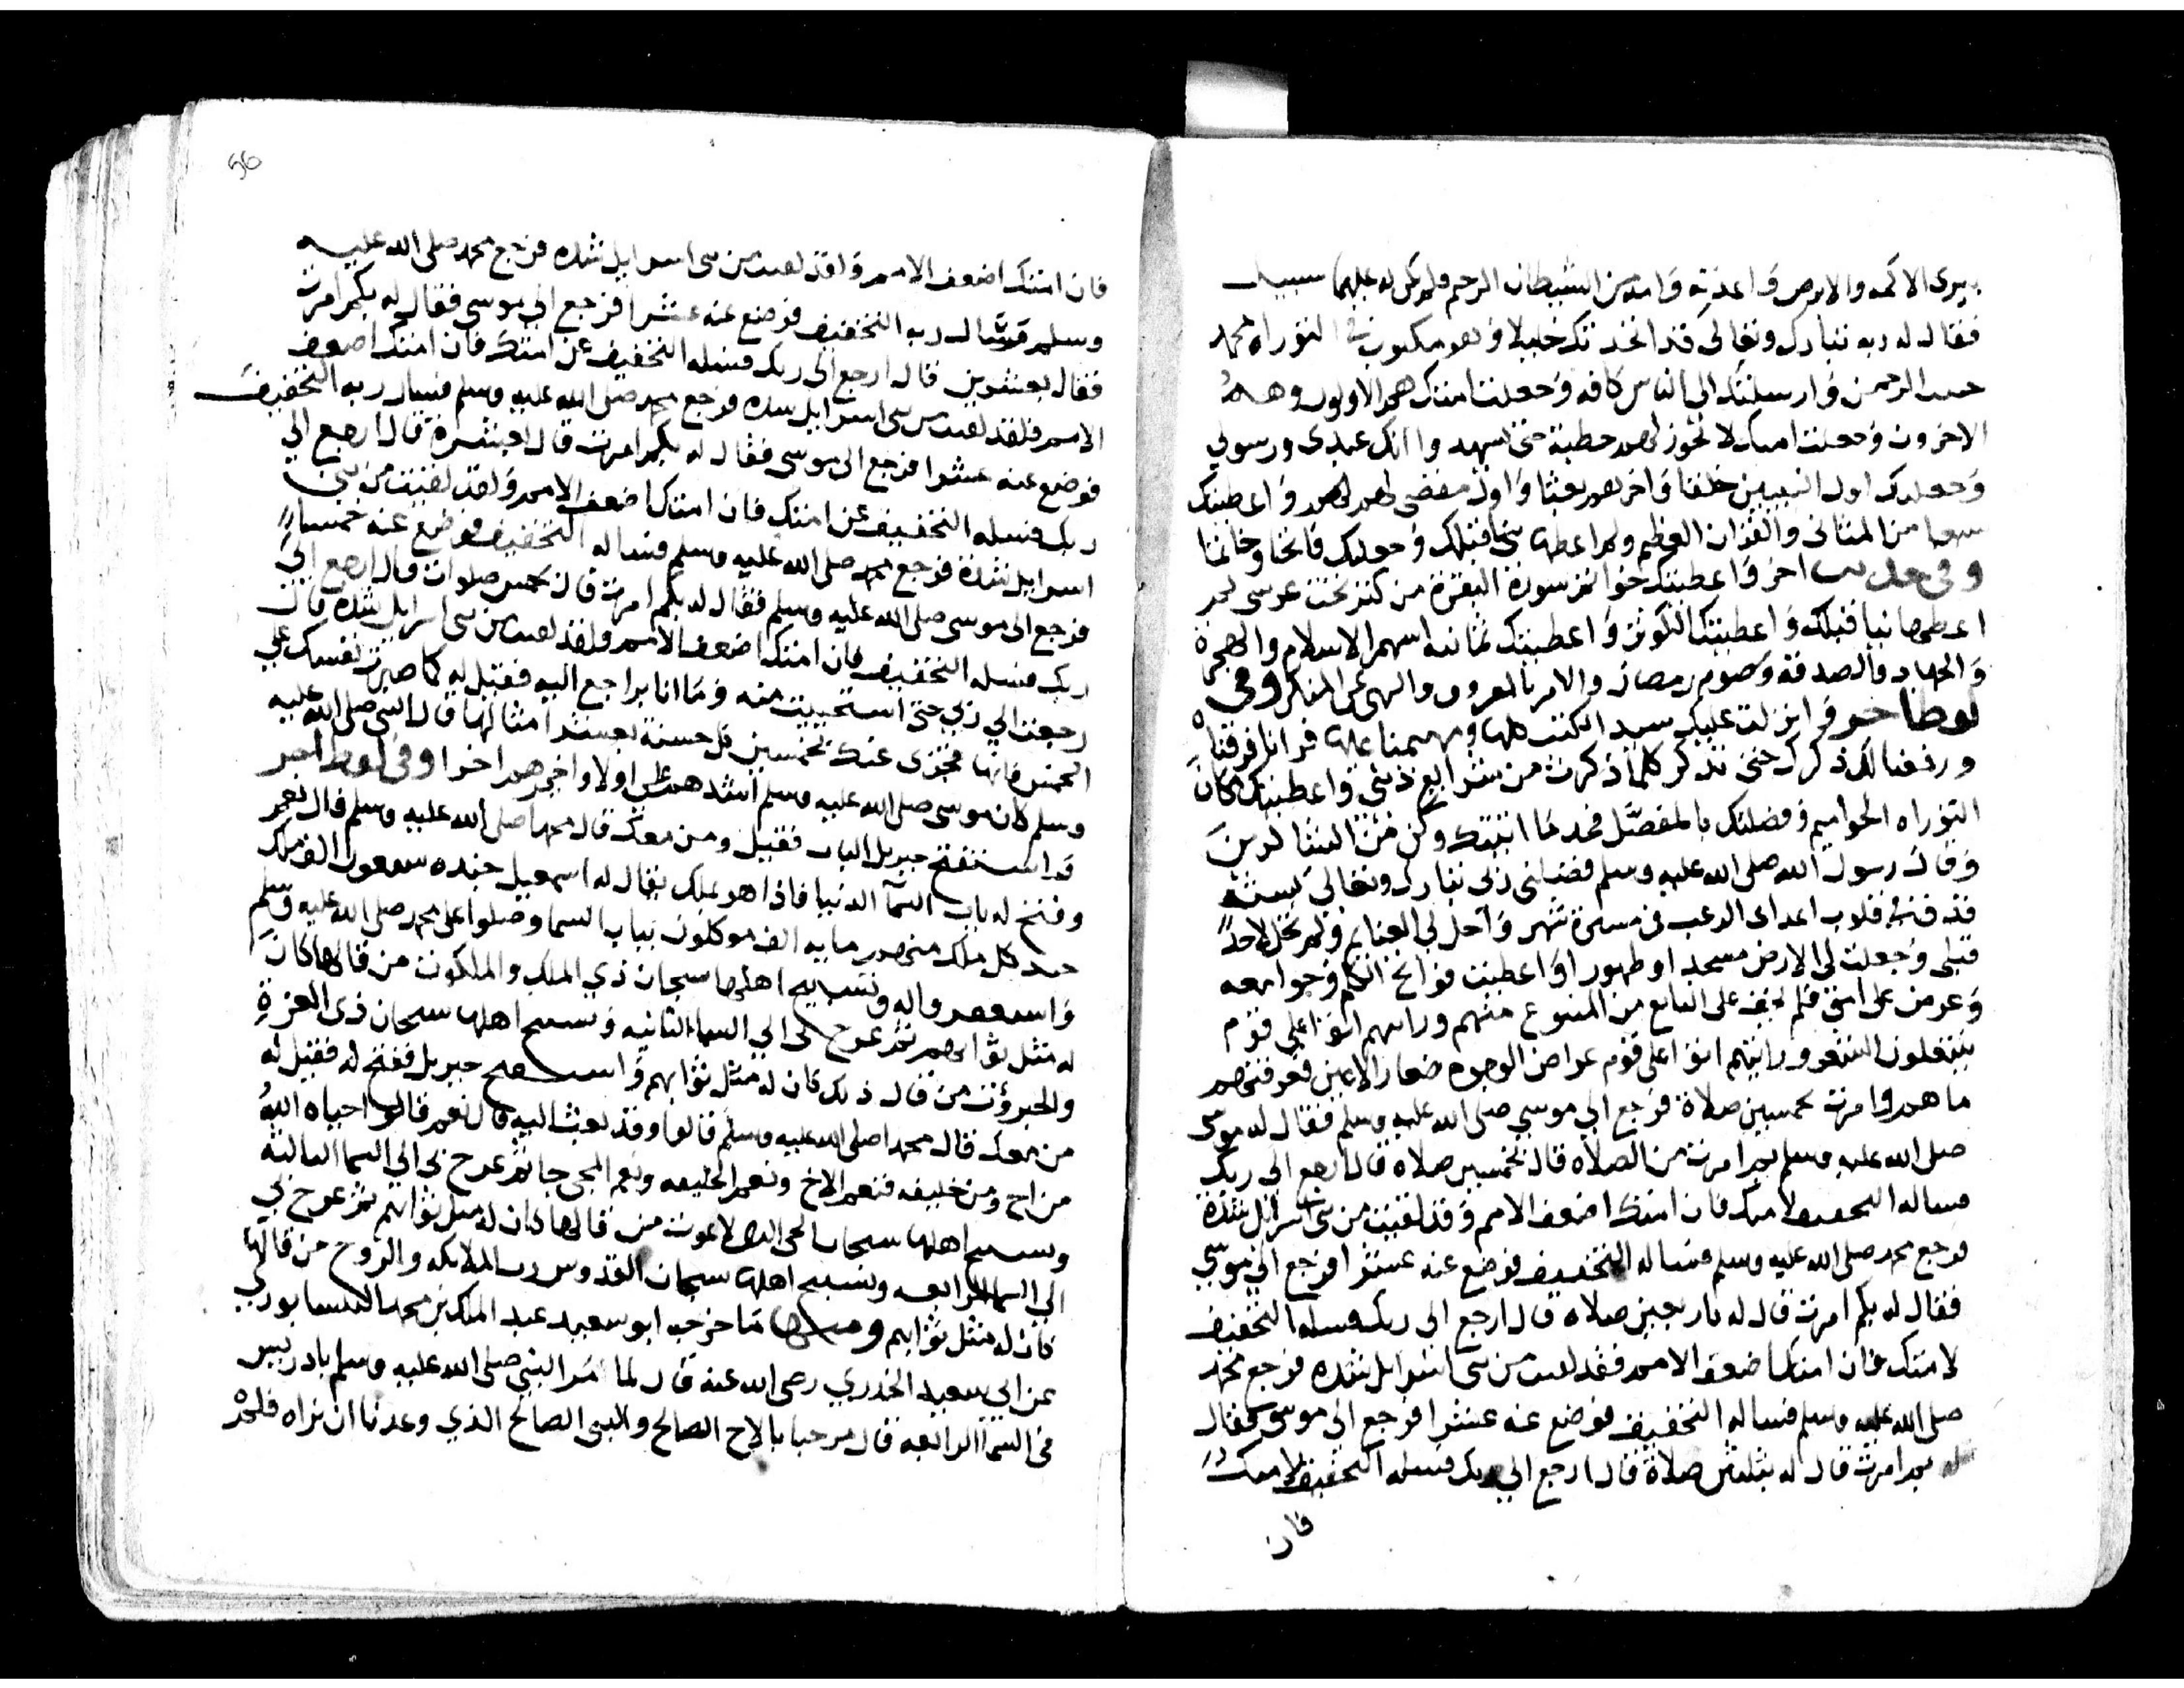 يبرى الاكمه والابرص واعذته وامه من الشيطان الرجيم فلم يكن له عليهما سبيل
فقال له ربه تبارك وتعالى قد اتخذتك خليلا وهو مكتوب في التوراه محمد
حبيب الرحمن وارسلتك الى الناس كافه وجعلت امتك هم الاولون وهم
الاخرون وجعلت امتك لا تجوز لهم خطبة حتى يشهدوا انك عبدى ورسولي
وجعلتك اول النبيين خلقا واخرهم بعثا واول مقضى لهم واعطيتك
سبعا من المثاني والقران العظيم ولم اعطها نبيا قبلك وجعلتك فاتحا وخاتما
وفي حديث اخر واعطيتك خواتم سورة البقرة من كنز تحت عرشى لم
اعطها نبيا قبلك واعطيتك الكوثر واعطيتك ثمانيه اسهم الاسلام والهجرة
والجهاد والصدقة وصوم رمضان والامر بالمعروف والنهى عن المنكر وفي
لفظ اخر وانزلت عليك سيد الكتب كلها ومهيمنا عليها قرانا فرقناه
ورفعنا لك ذكرك حتى تذكر كلما ذكرت من شرايع ديني واعطيتك مكان
التوراه الحواميم وفضلتك بالمفصل فخذ ما اتيتك وكن من الشاكرين
وقال رسول الله صلى الله عليه وسلم فضلني ربي تبارك وتعالى بستة
قذف في قلوب اعداى الرعب في مسيرة شهر واحل لي الغنايم ولم تحل لاحد
قبلي وجعلت لي الارض مسجدا وطهورا واعطيت فواتح الكلم وجوامعه
وعرض على امتي فلم يخف على التابع من المتبوع منهم ورايتهم اتوا على قوم
ينتعلون الشعر ورايتهم اتوا على قوم عراض الوجوه صغار الاعين فعرفتهم
ما هم وامرت بخمسين صلاة فرجع الي موسي صلى الله عليه وسلم فقال له موسى
صلى الله عليه وسلم بم امرت من الصلاه قال بخمسين صلاه قال ارجع الى ربك
فساله التخفيف لامتك فان امتك اضعف الامم وقد لقيت من بني اسرايل شدة
فرجع محمد صلى الله عليه وسلم فساله التخفيف فوضع عنه عشرا فرجع الي موسي
فقال له بكم امرت قال له باربعين صلاه قال ارجع الى ربك فسله التخفيف
لامتك فان امتك اضعف الامم فقد لقيت من بني اسرايل شده فرجع محمد
صلى الله عليه وسلم فساله التخفيف فوضع عنه عشرا فرجع الي موسى فقال
له بم امرت قال له بثلثين صلاة قال ارجع الي ربك فسله التخفيف لامتك
فان
56
فان امتك اضعف الامم ولقد لقيت من بني اسرايل شده فرجع محمد صلى الله عليه
وسلم فسال ربه التخفيف فوضع عنه عشرا فرجع الي موسى فقال له بكم امرت
فقال بعشرين قال ارجع الى ربك فسله التخفيف عن امتك فان امتك اضعف
الامم فلقد لقيت من بني اسرايل شده فرجع محمد صلى الله عليه وسلم فسال ربه التخفيف
فوضع عنه عشرا فرجع الى موسى فقال له بكم امرت قال بعشرة قال ارجع الي
ربك فسله التخفيف عن امتك فان امتك اضعف الامم ولقد لقيت من بني
اسرايل شدة فرجع محمد صلى الله عليه وسلم فساله التخفيف فوضع عنه خمسا
فرجع الى موسى صلى الله عليه وسلم فقال له بكم امرت قال بخمس صلوات قال ارجع الي
ربك فسله التخفيف فان امتك اضعف الامم ولقد لقيت من بني اسرايل شده قال
رجعت الي ربي حتى استحييت منه وما انا براجع اليه فقيل له كما صبرت نفسك علي
الخمس فانها تجزى عنك بخمسين كل حسنة بعشر امثالها قال النبي صلى الله عليه
وسلم كان موسى صلى الله عليه وسلم اشدهم علي اولا واخرهم اخرا وفي لفظ اخر
قد استفتح جبريل الباب فقيل ومن معك قال محمدا صلى الله عليه وسلم قال نعم
وفتح له باب السما الدنيا فاذا هو بملك يقال له اسمعيل جنده سبعون الف ملك
جند كل ملك منهم مايه الف موكلون بباب السما وصلوا على محمد صلى الله عليه وسلم
واستغفروا له وتسبيح اهلها سبحان ذي الملك والملكوت من قالها كان
له مثل ثوابهم ثم عرج بي الي السماء الثانيه وتسبيح اهلها سبحان ذى العزة
والجبروت من قال ذلك كان له مثل ثوابهم واستفتح جبريل ففتح له فقيل له
من معك قال محمدا صلى الله عليه وسلم قالوا وقد بعث اليه قال نعم قالوا حياه الله
من اخ ومن خليفه فنعم الاخ ونعم الخليفه ونعم المجى جا ثم عرج بي الي السما الثالثه
وتسبيح اهلها سبحان الحي الذى لا يموت من قالها كان له مثل ثوابهم ثم عرج بي
الي السما الرابعه وتسبيح اهلها سبحان القدوس رب الملايكه والروح من قالها
كان له مثل ثوابهم ومنها ما خرجه ابو سعيد عبد الملك بن محمد النيسابوري
عن ابي سعيد الخدري رضى الله عنه قال لما مر النبي صلى الله عليه وسلم بادريس
في السما الرابعه قال مرحبا بالاخ الصالح والنبى الصالح الذي وعدنا ان نراه فلم